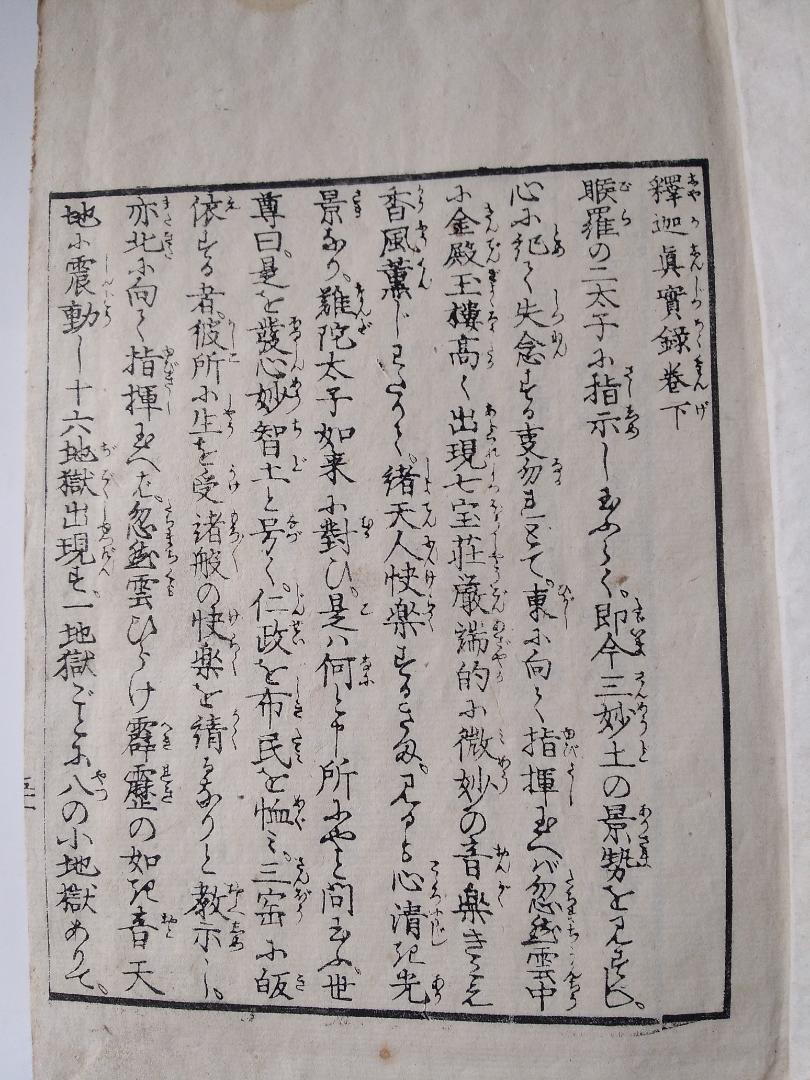 釋迦眞實録巻下
睺羅の二太子に指示し玉ふらく。即今三妙土の景勢を見すべし。
心に犯て失念する叓勿れとて。東に向て指揮玉へバ忽然雲中
に金殿玉樓高く出現七宝荘厳端的に微妙の音樂きこえ
香風薫じわたりて。諸天人快樂するさま。見るも心清き光
景なり。難陀太子如来に對ひ。是ハ何と申所にやと問玉ふ。世
尊曰。是を發心妙智土と号く。仁政を布民を恤ミ。三宝に皈
依する者。彼所に生を受諸般の快樂を請るなりと教示し。
亦北に向て指揮玉へば。忽然雲ひらけ霹靂の如き音天
地に震動し十六地獄出現す。一地獄ごとに八の小地獄ありて。